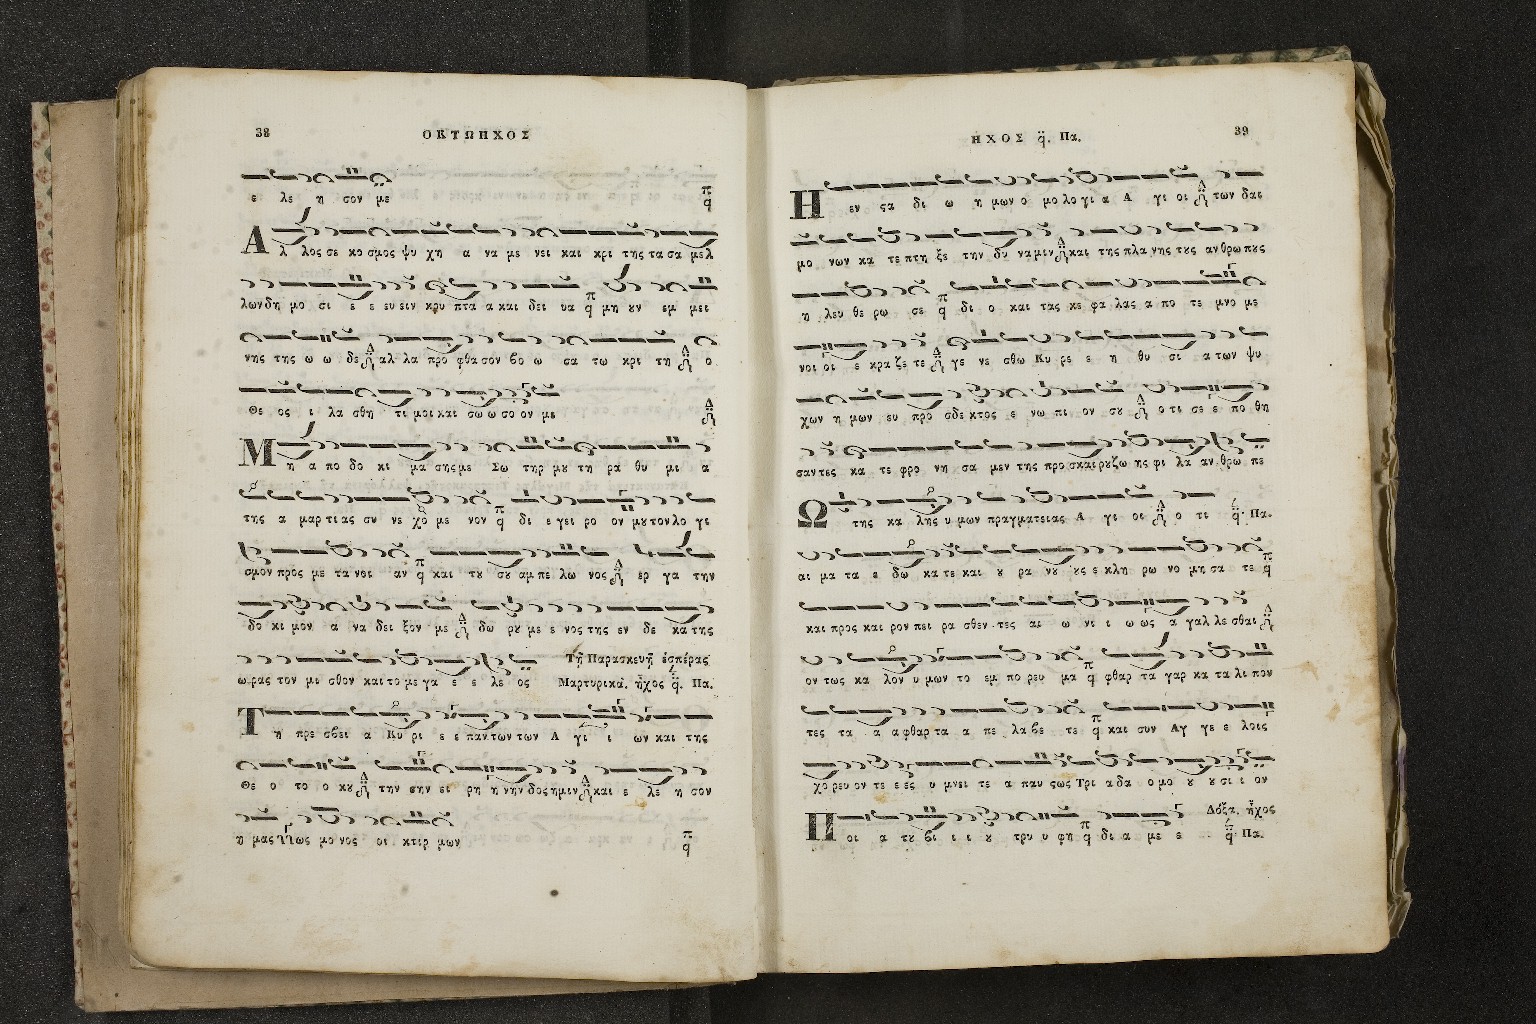 38
ΟΚΤΩΗΧΟΣ
ε λε η σον με
Αλ λος σε κο σμος ψυ χη α να με νει και κρι της τα σα μελ
λων δη μο σι ε ε ευειν κρυ πτα α και δει να μη ουν εμ μει
νης της ω ω δε αλ λα προ φθα σον βο ω σα τω κρι τη ο
Θε ος ι λα σθη τι μοι και σω ω σο ον με
Μη α πο δο κι μα σης με Σω τηρ μου τη ρα θυ μι α
της α μαρ τι ας συ νε χο με νον δι ε γει ρο ον μου τον λο γι
σμον προς με τα νοι αν και του σου αμ πε λω νος ερ γα την
δο κι μον α να δει ξον με δω ρου με ε νος της εν δε κα της
ω ρας τον μι σθον και το με γα ε ε λε ος
Τῇ Παρασκευῇ ἑσπέρας
Μαρτυρικά. ἦχος q. Πα.
Τη πρε σβει α Κυ ρι ε ε παν των των Α γι ι ων και της
Θε ο το ο κου την σην ει ρη η νην δος ημιν και ε λε η σον
η μας ως μο νος οι κτιρ μων
39
ΗΧΟΣ q. Πα.
Η εν ςα δι ω η μων ο μο λο γι α Α γι οι των δαι
μο νων κα τε πτη ξε την δυ να μιν και της πλα νης τους αν θρω πους
η λευ θε ρω σε δι ο και τας κε φα λας α πο τε μνο με
νοι οι ε κρα ζε τε γε νε σθω Κυ ρι ε η θυ σι α των ψυ
χων η μων ευ προ σδε κτος ε νω πι ον σου ο τι σε ε πο θη
σαν τες κα τε φρο νη σα μεν της προ σκαι ρου ζω ης φι λα αν θρω πε
Ω της κα λης υ μων πραγματειας Α γι οι ο τι q. Πα.
αι μα τα ε δω κα τε και ου ρα νου ους ε κλη ρω νο μη σα τε
και προς και ρον πει ρα σθεν τες αι ω νι ι ω ως α γαλ λε σθαι
ον τως κα λον υ μων το εμ πο ρευ μα φθαρ τα γαρ κα τα λι πον
τες τα α α φθαρ τα α πε λα βε τε και συν Αγ γε ε λοις
χο ρευ ον τε ε ες υ μνει τε α παυ ςως Τρι α δα ο μο ου ου σι ι ον
Δόξα, ἦχος
Ποι α του βι ι ι ου τρυ υ φη δι α με ε q. Πα.